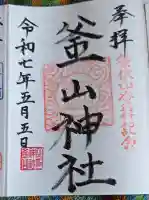 奉拝
釜山神社
令和七年五月五日